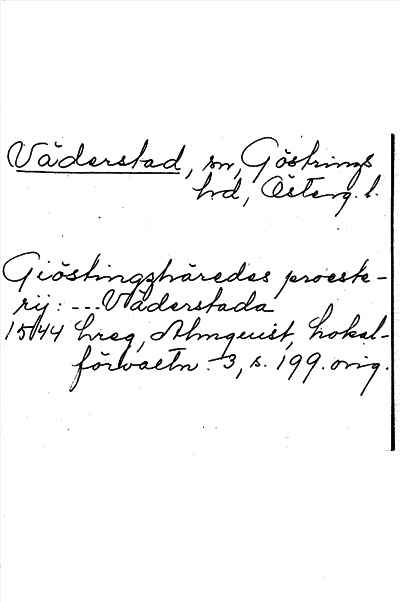 Väderstad, sn, Göstrings
hd, Österg. l.
Giöstingzhäredes proeste-
rij: --- Väderstada
1544 hreg, Almquist, Lokal-
förvaltn. 3, s. 199. orig.